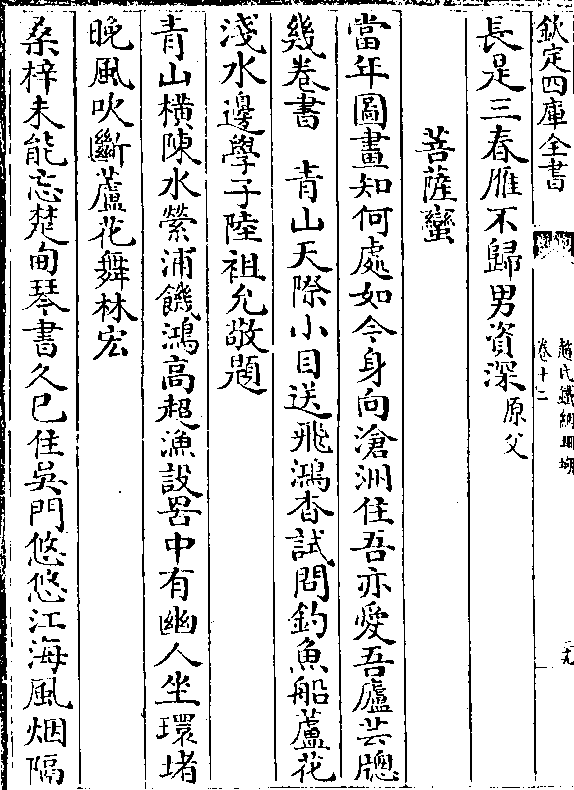 欽定四庫全書
趙氏鐵網珊瑚
卷十二
長是三春雁不歸男資深原父
菩薩蠻
當年圖畫知何處如今身向滄洲住吾亦愛吾廬芸牕
幾卷書　青山天際小目送飛鴻杳試問釣魚船蘆花
淺水邊學子陸祖允敬題
青山橫陳水縈浦饑鴻高起漁設罟中有幽人坐環堵
晚風吹斷蘆花舞林宏
桑梓未能忘楚甸琴書久已住吳門悠悠江海風烟隔